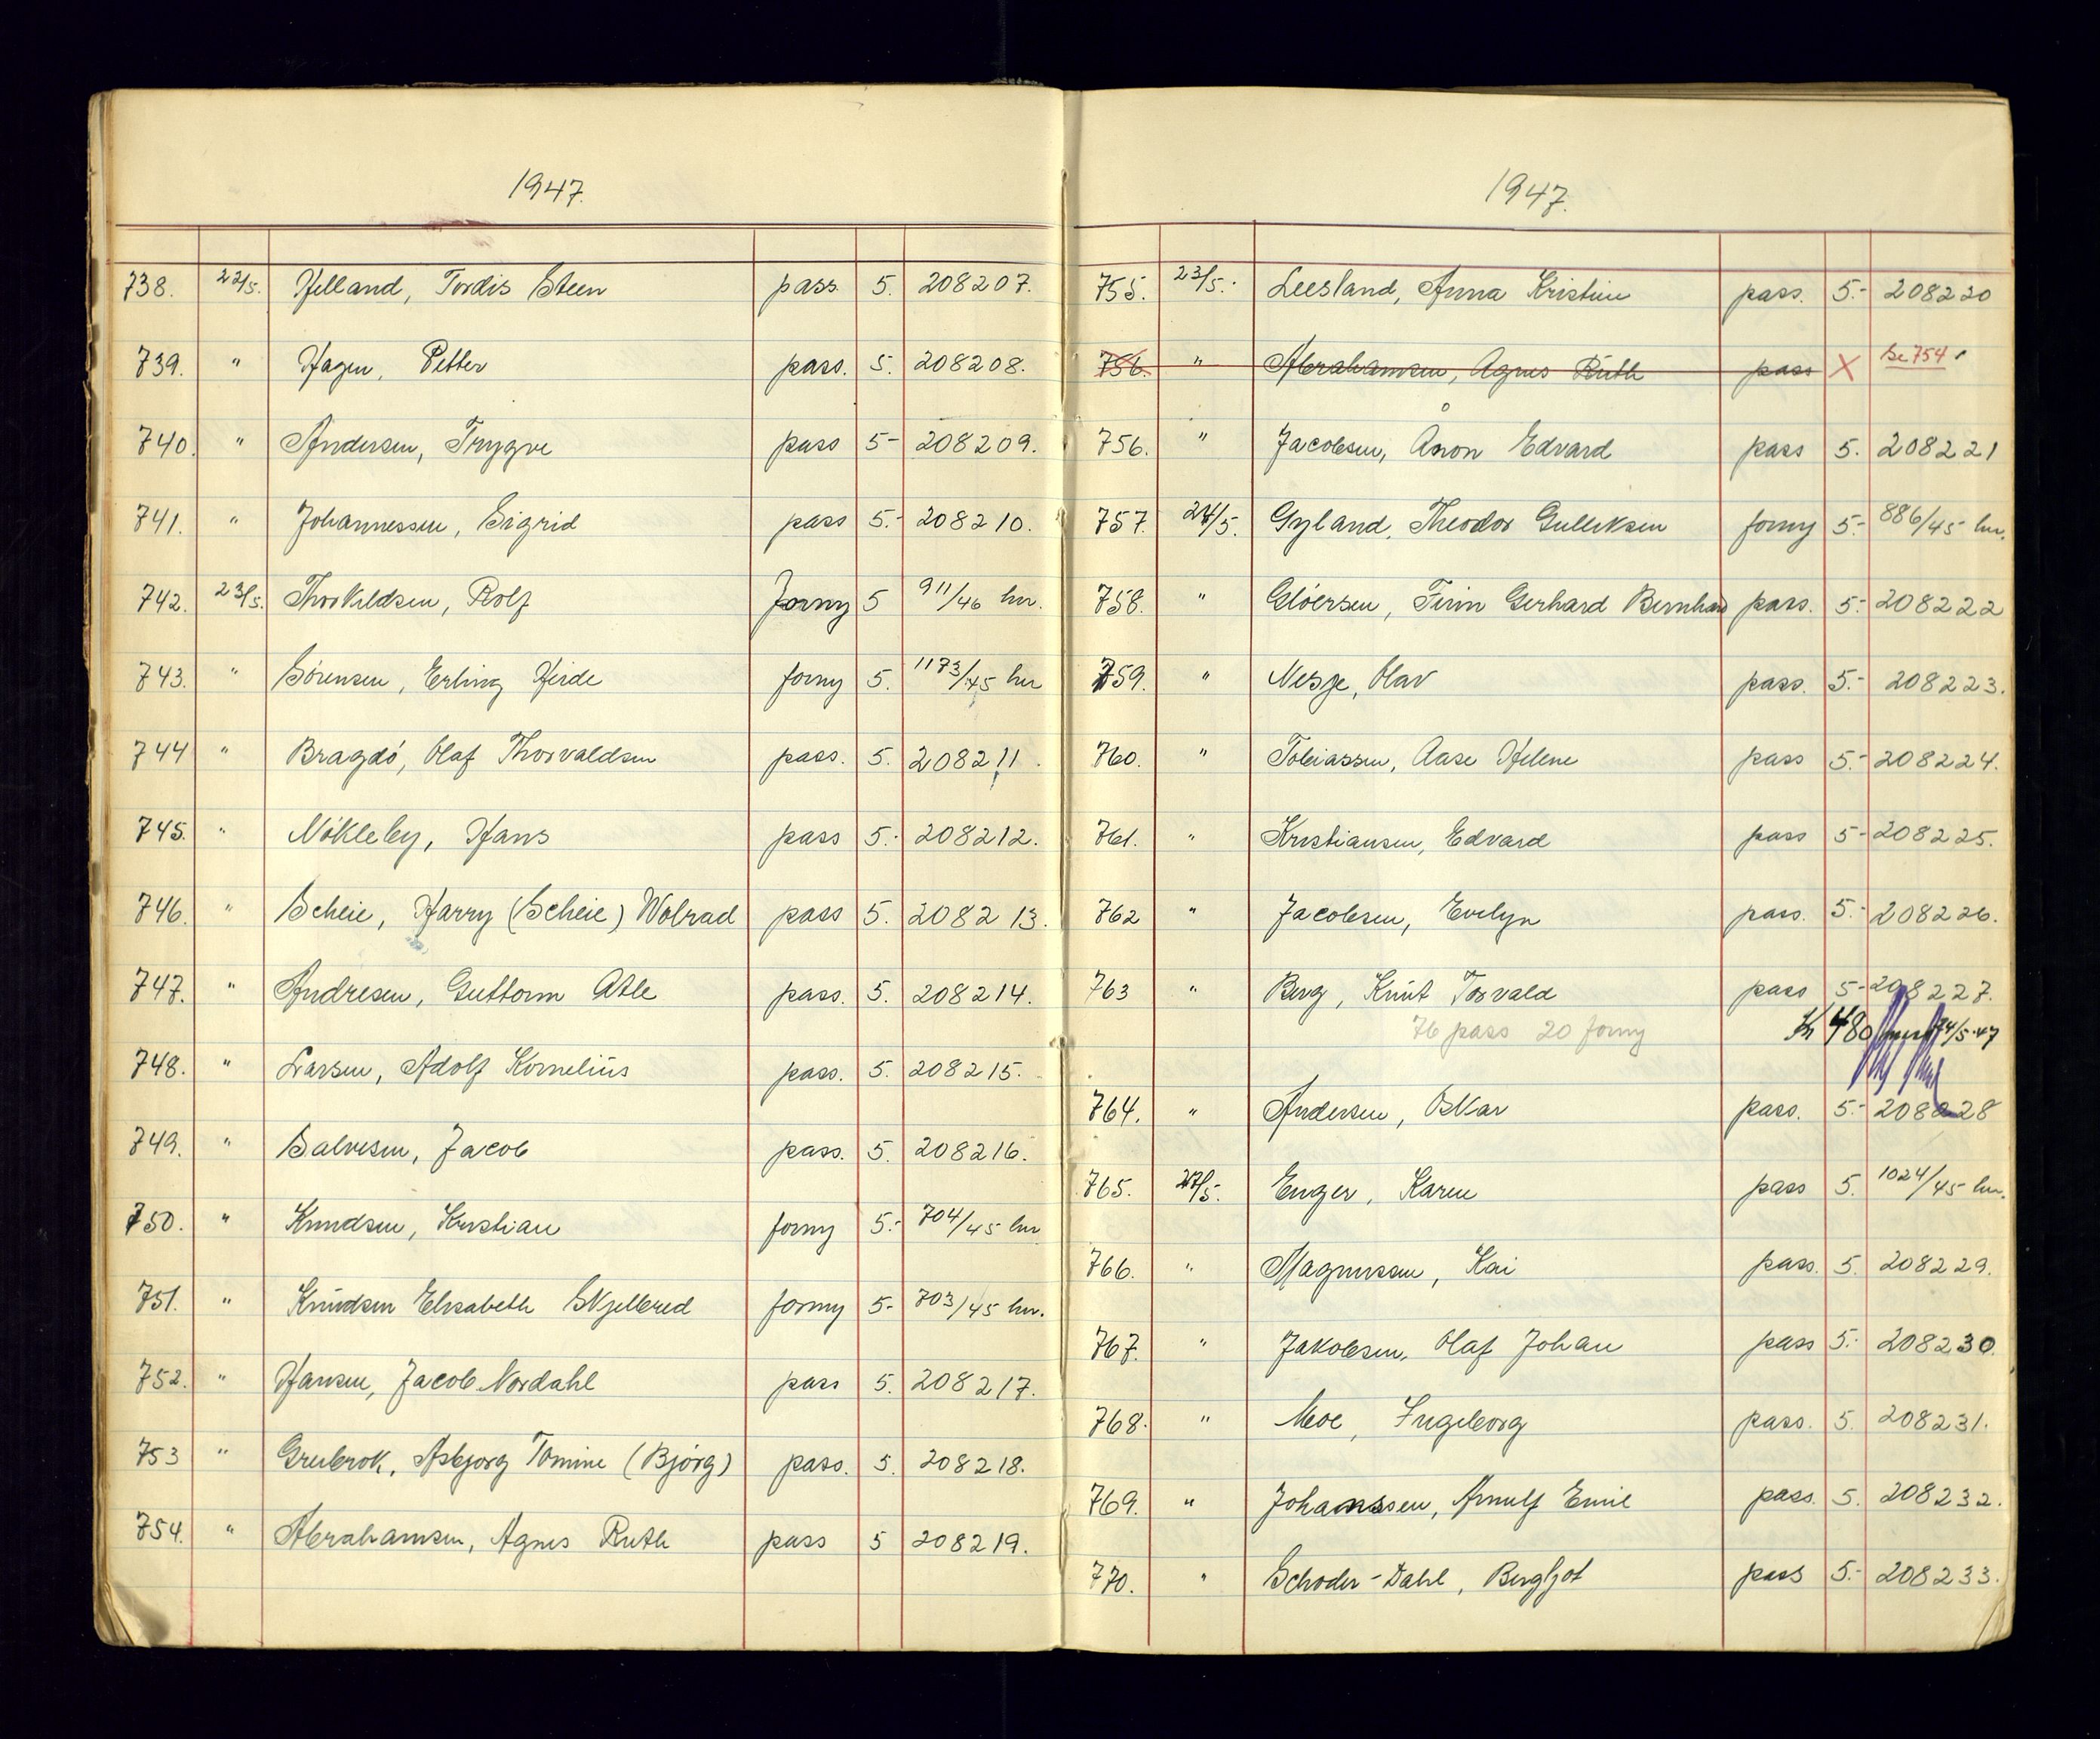 1947.
738. 22/5. Helland, Tordis Steen pass. 5. 208207.
739. " Hagen, Petter pass. 5. 208208.
740. " Andersen, Trygve pass 5- 208209.
741. " Johannessen, Sigrid pass 5.- 208210.
742. 23/5. Thorkildsen, Rolf Forny 5 911/46 hr.
743. " Sørensen, Erling Heide forny 5. 1173/45 hr
744 " Bragdø, Olaf Thorvaldsen pass. 5. 208211.
745. " Nøkleby, Hans pass 5.- 208212.
746. " Scheie, Harry (Scheie) Wolrad pass 5. 208213.
747. " Andresen, Guttorm Atle pass. 5. 208214.
748. " Larsen, Adolf Kornelius pass. 5. 208215.
749. " Salvesen, Jacob pass. 5. 208216.
750. " Knudsen, Kristian forny 5.- 704/45 hr
751. " Knudsen Elisabeth Skjellered forny 5- 703/45 hr.
752. " Hansen, Jacob Nordahl pass 5. 208217.
753 " Grubrok, Asbjorg Tomine (Bjørg) pass. 5. 208218.
754. " Abrahamsen, Agnes Ruth pass 5 208219.
1947.
755. 23/5.- Leesland, Anna Kristine pass. 5.- 208220
756. " Abrahamsen, Agnes Ruth pass X Se 754
756. " Jacobsen, Ånon Edvard pass 5. 208221
757. 24/5. Gyland, Theodor Gulleksen forny 5- 886/45 hr.
758. " Gløersen, Finn Gerhard Bernhard pass. 5.- 208222
759. " Nesje, Olav pass. 5.- 208223.
760. " Tobiassen, Aase Helene pass 5.- 208224.
761. " Kristiansen, Edvard pass 5- 208225.
762 " Jacobsen, Evelyn pass. 5.- 208226.
763 " Berg, Knut Torvald pass 5- 208227.
76 pass 20 forny Kr 480 24/5-47
764. " Andersen, Oskar pass. 5.- 208228
765. 27/5. Enger, Karen pass 5. 1024/45 hr.
766. " Magnussen, Kai pass. 5. 208229.
767. " Jakobsen, Olaf Johan pass 5.- 208230.
768. " Moe, Ingeborg pass. 5. 208231.
769. " Johanssen, Arnulf Emil pass. 5. 208232.
770. " Schoder-Dahl, Bergljot pass 5.- 208233.